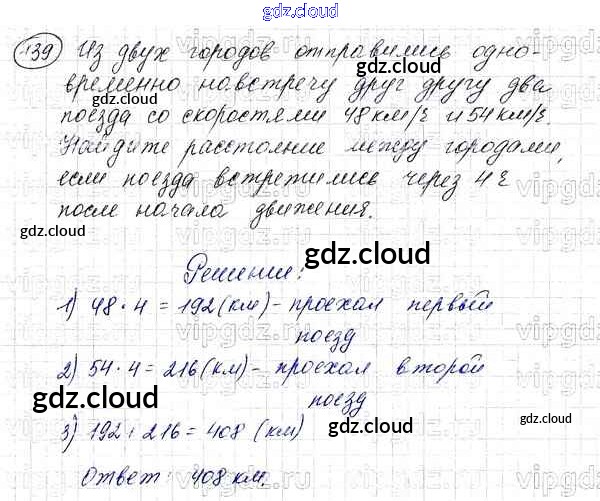 gdz.cloud
139 Из двух городов отправились одно-
временно навстречу друг другу два
gdz.cloud
поезда со скоростями 48 км/ч и 54 км/ч.
Найдите расстояние между городами,
если поезда встретились через 4 ч
после начала движения.
gdz.cloud
gdz.cloud
gdz.cloud
Решение:
1) 48 · 4 = 192 (км) - проехал первый
поезд
2) 54 · 4 = 216 (км) - проехал второй
поезд
gdz.cloud
gdz.cloud
3) 192 + 216 = 408 (км)
Ответ: 408 км.
gdz.cloud